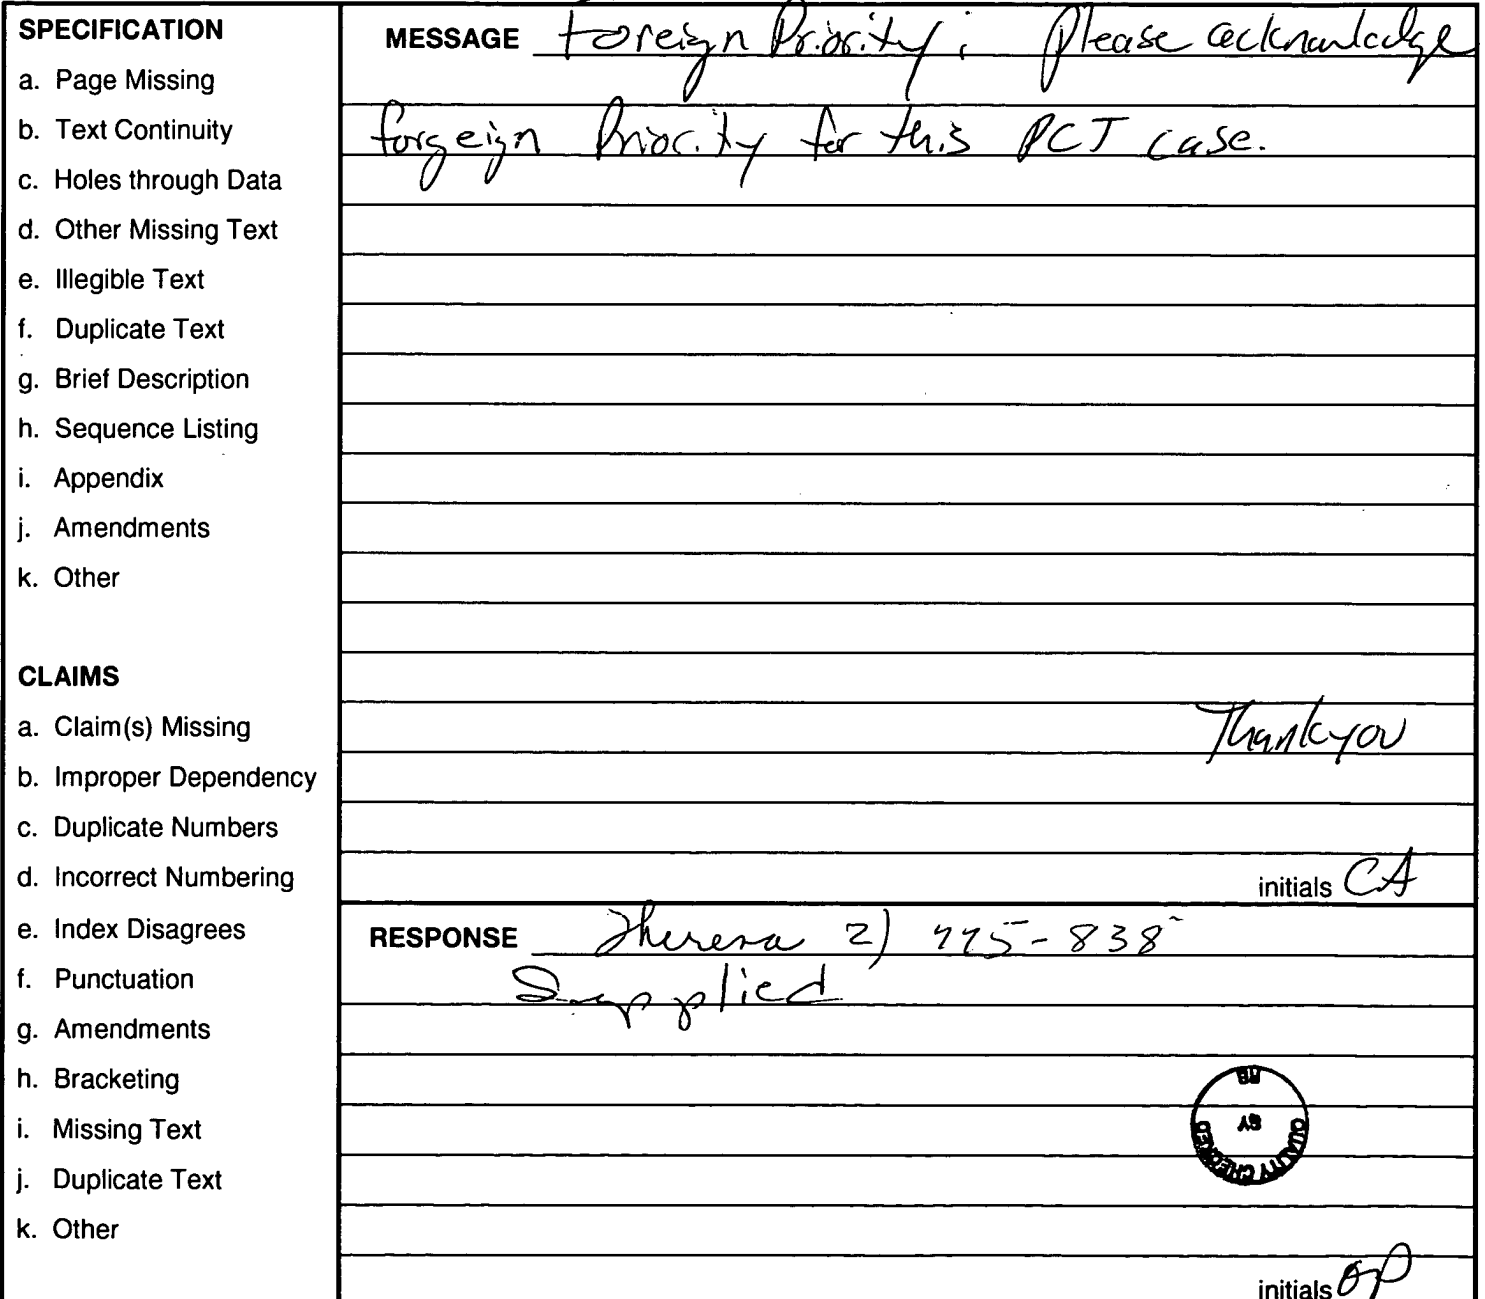 SPECIFICATION
a. Page Missing
b. Text Continuity
c. Holes through Data
d. Other Missing Text
e. Illegible Text
f. Duplicate Text
g. Brief Description
h. Sequence Listing
i. Appendix
j. Amendments
k. Other
CLAIMS
a. Claim(s) Missing
b. Improper Dependency
c. Duplicate Numbers
d. Incorrect Numbering
e. Index Disagrees
f. Punctuation
g. Amendments
h. Bracketing
i. Missing Text
j. Duplicate Text
k. Other
MESSAGE Foreign Priority: Please acknowledge
forgeign Priority for this PCT case.
Thank you
initials CA
RESPONSE 2)
Supplied
QUALITY CHECKED
BY
initials